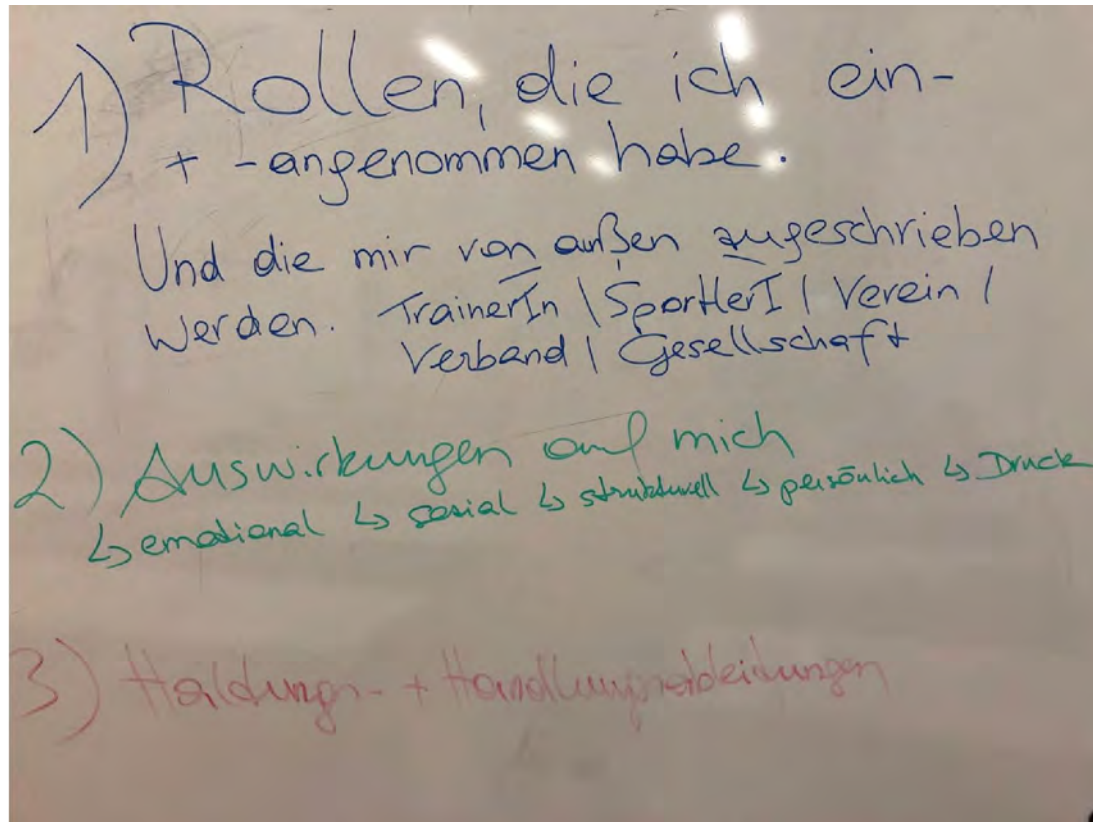 1) Rollen, die ich ein-
+ -angenommen habe.
Und die mir von außen zugeschrieben
werden. TrainerIn | SportlerI | Verein |
Verband | Gesellschaft
2) Auswirkungen auf mich
↳ emotional ↳ sozial ↳ strukturell ↳ persönlich ↳ Druck
3) Haltungs- + Handlungsableitungen